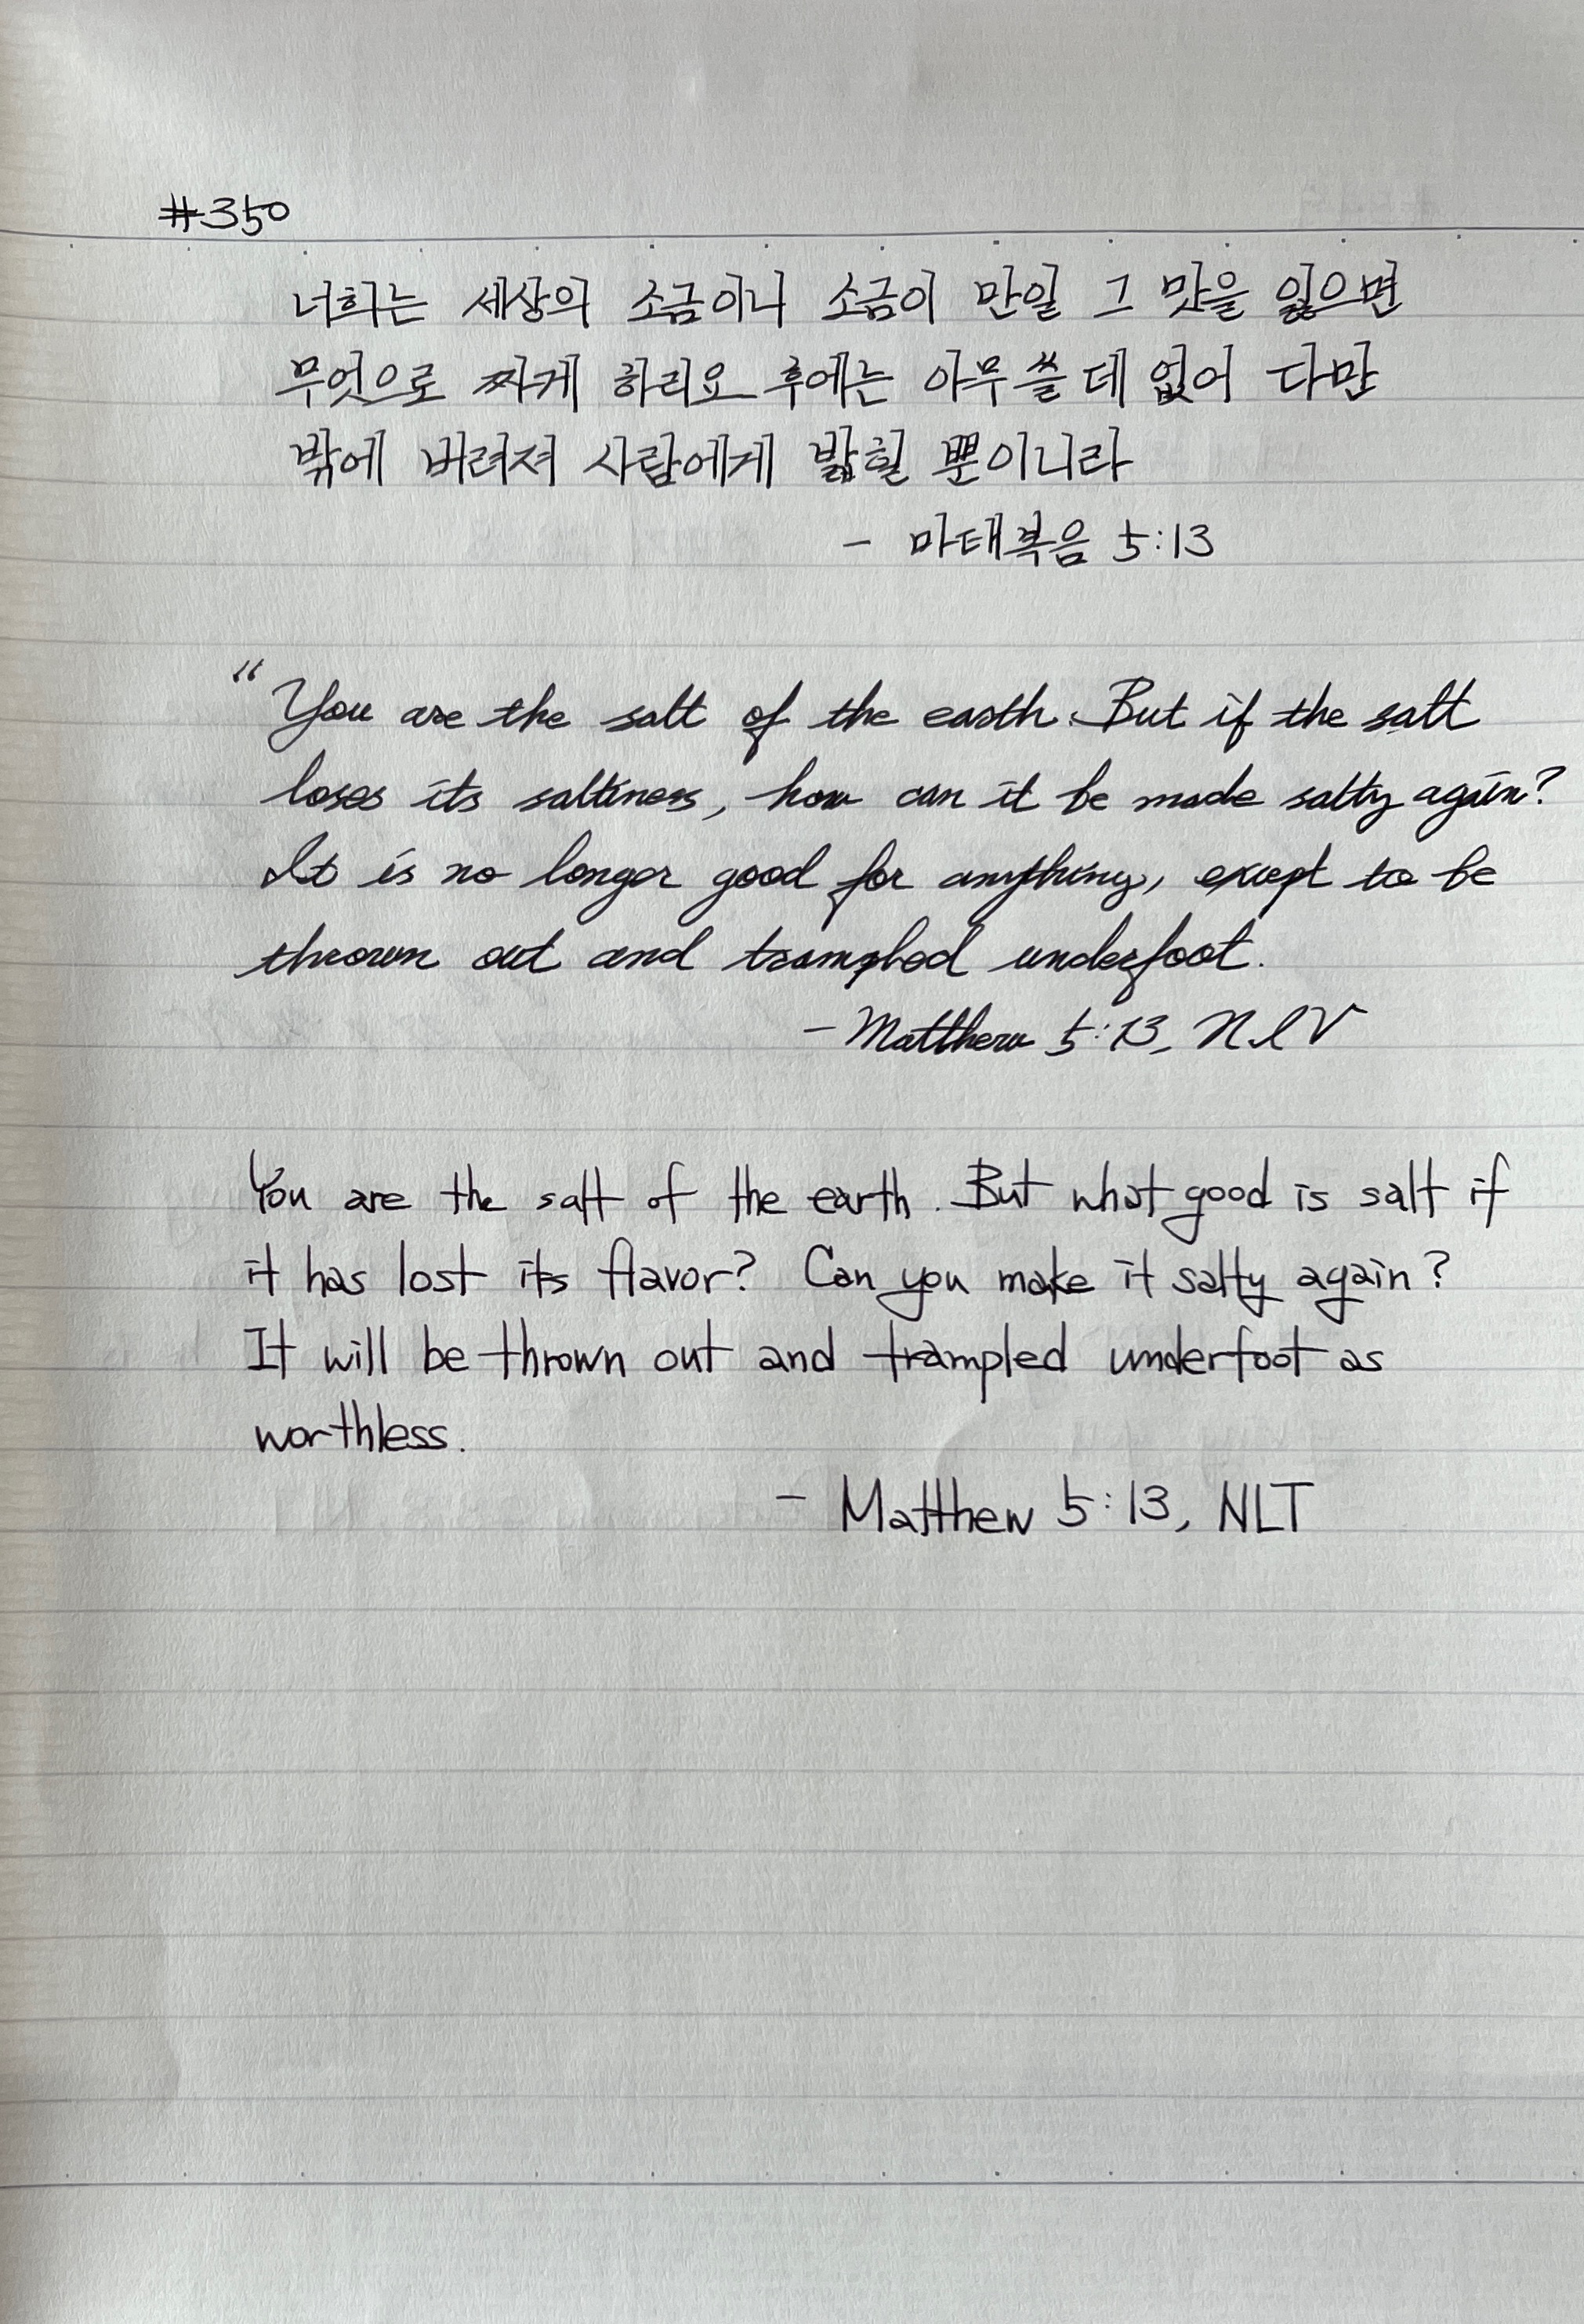 #350
너희는 세상의 소금이니 소금이 만일 그 맛을 잃으면
무엇으로 짜게 하리요 후에는 아무 쓸 데 없어 다만
밖에 버려져 사람에게 밟힐 뿐이니라
- 마태복음 5:13
“You are the salt of the earth. But if the salt
loses its saltiness, how can it be made salty again?
It is no longer good for anything, except to be
thrown out and trampled underfoot.
- Matthew 5:13, NIV
You are the salt of the earth. But what good is salt if
it has lost its flavor? Can you make it salty again?
It will be thrown out and trampled underfoot as
worthless.
- Matthew 5:13, NLT